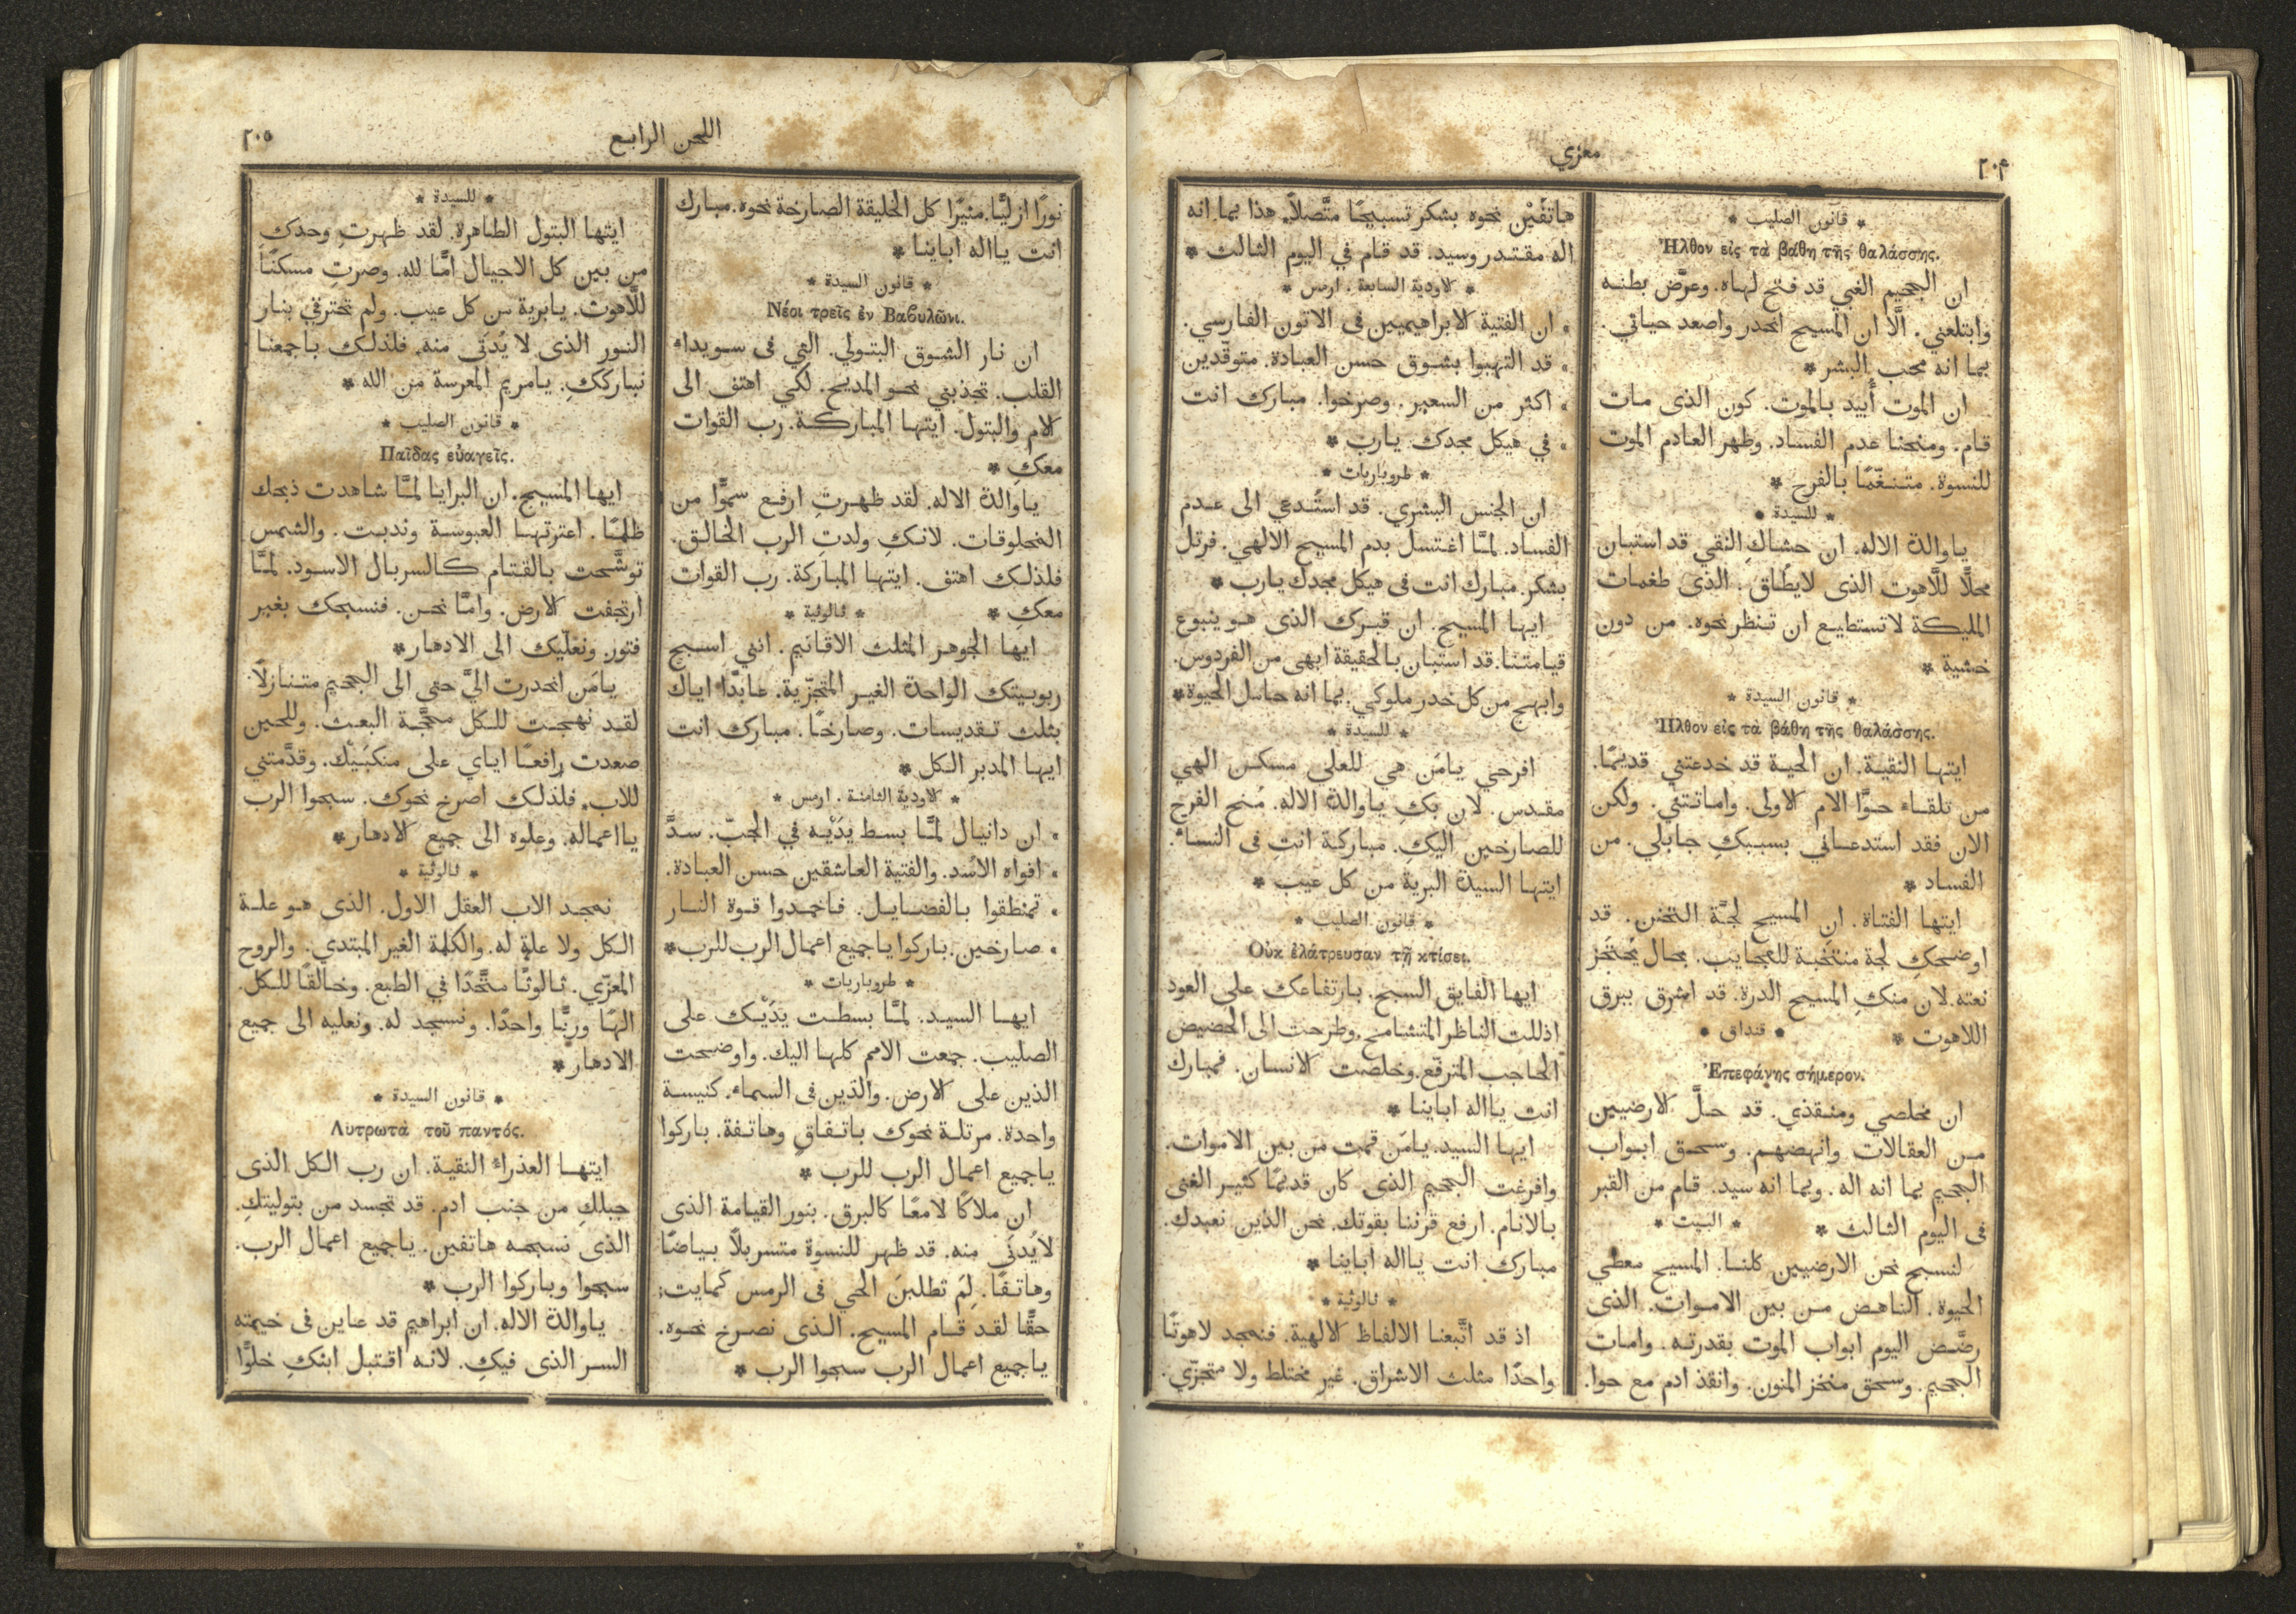 ٢٠٤
معزي
* قانون الصليب *
Ἦλθον εἰς τὰ βάθη τῆς θαλάσσης.
ان الجحيم الغبي قد فتح لهاه. وعرَّض بطنـه
وابتلعني. الَّا ان المسيح انحدر واصعد حياتي.
بما انه محب البشر *
ان الموت أُبيد بالموت. كون الذى مـات
قام. ومنحنا عدم الفساد. وظهر العادم الموت
للنسوة. متنـغّمًا بالفرح *
* للسيدة *
ياوالدة الاله. ان حشاكِ النقي قد استبان
محلًّا للَّاهوت الذى لايطاق. الذى طغمات
المليكة لاتستطيـع ان تـنظر نحوه. من دون
خشية *
* قانون السيدة *
Ἦλθον εἰς τὰ βάθη τῆς θαλάσσης.
ايتها النقيـة. ان الحيـة قد خدعتني قديمًا.
من تلقـاء حـوَّا الام الاولى. واماتـتني. ولكن
الان فقد استدعـاني بسبـبكِ جابلي. من
الفساد *
ايتها الفتاة. ان المسيح لجـَّة التحنن. قد
اوضحك لجة منتخبـة للعجايب. بحال يُحتَجَز
نعته. لان منكِ المسيح الدرة. قد اشرق ببرق
اللاهوت *
* قنداق *
Ἐπεφάνης σήμερον.
ان مخلصي ومنـقذي. قد حلَّ الارضيين
مـن العقالات وانهضهـم. وسحـق ابـواب
الجحيم بما انه اله. وبما انه سيد. قام من القبر
فى اليوم الثالث *
* البيت *
لنسبح نحن الارضيين كلنـا. المسيح معطي
الحيوة. الناهـض مـن بين الامـوات. الذى
رضَّـض اليوم ابواب الموت بقدرتـه. وامـات
الجحيم. وسحق منخز المنون. وانقذ ادم مع حوا.
هاتفَيْن نحوه بشكر تسبيحًا متَّصلاً. هذا بما انه
اله مقـتـدر وسيد. قد قـام في اليوم الثالث *
* الاودية السابعة. ارمس *
» ان الفتية الابراهيميين فى الاتون الفارسي.
» قد التهبوا بشـوق حسن العبادة. متوقّدين
» اكثر من السعير. وصرخوا. مبارك انت
» في هيكل مجدك يارب *
* طروباريات *
ان الجنس البشري. قد استُدعي الى عـدم
الفساد. لمـَّا اغـتسل بدم المسيح الالهي. فرتل
بشكر. مبارك انت فى هيكل مجدك يارب *
ايها المسيح. ان قبـرك الذى هـو ينبوع
قيامتـنـا. قد استبـان بـالحقيقة ابهى من الفردوس.
وابهج من كل خدر ملوكي. بما انه حامل الحيوة *
* للسيدة *
افرحي يامَن هي للعلي مسكـن الهي
مقـدس. لان بك ياوالدة الاله. مُنح الفرح
للصـارخين اليكِ. مباركـة انتِ فى النسـاء.
ايتها السيدة البرية من كل عيب *
* قانون الصليب *
Οὐκ ἐλάτρευσαν τῇ κτίσει.
ايها الفايق السبح. بـارتفـاعك على العود
اذللت النـاظر المتشامخ. وطرحت الى الحضيض
الحـاجب المترفّع. وخلصت الانسـان. فمبارك
انت يااله اباينا *
ايها السيد. يامَن قمت من بين الاموات.
وافرغت الجحيم الذى كان قديمًا كثيـر الغنى
بالانـام. ارفع قرننا بقوتك. نحن الذين نعبدك.
مبارك انت يااله اباينا *
* ثالوثية *
اذ قد اتَّبعنـا الالفـاظ الالهية. فنمجد لاهوتًا
واحدًا مثلث الاشراق. غير مختلط ولا متجزّي.
اللحن الرابـع
٢٠٥
نورًا ازليًّا. منيرًا كل الخليقة الصارخة نحوه. مبارك
انت يااله اباينـا *
* قانون السيدة *
Νέοι τρεῖς ἐν Βαβυλῶνι.
ان نـار الشـوق البتـولي. القي فى سـويداء
القلب. تجذبني نحـو المديح. لكي اهتف الى
الام والبتول. ايتهـا المباركـة. رب القوات
معكِ *
يـاوالدة الاله. لقد ظهـرتِ ارفـع سموًّا من
المخلوقات. لانـكِ ولدتِ الرب الخـالـق.
فلذلـك اهتف. ايتهـا المبـاركة. رب القوات
معكِ *
* ثالوثية *
ايهـا الجوهـر المثلث الاقـانيم. انني اسـبح
ربوبـيتك الواحدة الغيـر المتجزّية. عـابدًا اياك
بثلث تـقديسات. وصارخًا. مبارك انت
ايهـا المدبر الكل *
* الاودية الثامنـة. ارمس *
» ان دانيال لمَّـا بسط يَدَيْـه في الجبّ. سدَّ
» افواه الاسُد. والفتية العاشقين حسن العبادة.
» تمنطقوا بـالفضـايـل. فـاخمـدوا قـوة النـار
» صارخين. باركوا ياجميع اعمال الرب للرب *
* طروباريات *
ايهـا السيـد. لمَّـا بسطـت يَدَيْـك على
الصليب. جمعت الامم كلهـا اليك. واوضحت
الذين على الارض. والذين فى السماء. كنيسـة
واحدة. مرتلـة نحوك باتـفـاقٍ وهاتـفة. باركوا
ياجميع اعمال الرب للرب *
ان ملاكًا لامعًا كالبرق. بنور القيامة الذى
لايُدنَى منه. قد ظهر للنسوة متسربلاً بـياضًا
وهاتـفًا. لِمَ تطلبنَ الحي فى الرمس كمايت؛
حقًّا لقـد قـام المسيح. الـذى نصرخ نحـوه.
ياجميع اعمال الرب سبحوا الرب *
* للسيدة *
ايتهـا البتول الطـاهرة. لقد ظهرتِ وحدكِ
من بين كل الاجيـال امًّـا لله. وصرتِ مسكنًـا
للَّاهوت. يابرية من كل عيب. ولم تحترقي بنـار
النـور الذى لا يُدنَى منه. فلذلـك بـاجمعنـا
نباركَكِ. يامريم المعرسة من الله *
* قانون الصليب *
Παῖδας εὐαγεῖς.
ايها المسيح. ان البرايا لمـَّا شاهدت ذبحك
ظلمًـا. اعترتهـا العبوسـة وندبت. والشمس
توشَّحت بـالقـتـام كـالسربـال الاسـود. لمـَّا
ارتجفت الارض. وامـَّا نحـن. فنسبحك بغير
فتور. ونعلّيك الى الادهار *
يـامَن انحدرت اليَّ حتى الى الجحيم متـنـازلاً.
لقـد نهجـت للـكل محجَّـة البعث. وللحين
صعدت رافعًـا اياي على منكبَيْك. وقدَّمتني
للاب. فلذلـك اصرخ نحوك. سبحوا الرب
يااعماله. وعلوه الى جميع الادهار *
* ثالوثية *
نمجد الاب العقل الاول. الذى هـو علـة
الكل ولا علة له. والكلمة الغير المبتدي. والروح
المعزّي. ثـالوثًـا متَّحدًا في الطبع. وخـالقًا للـكل.
الهًا وربًّا واحدًا. ونسجد له. ونعليه الى جميع
الادهار *
* قانون السيدة *
Λυτρωτὰ τοῦ παντός.
ايتهـا العذراء النقيـة. ان رب الكل الذى
جبلكِ من جنب ادم. قد تجسد من بتوليتكِ.
الذى نسبحـه هاتفين. ياجميع اعمال الرب.
سبحوا وبـاركوا الرب *
يـاوالدة الاله. ان ابراهيم قد عـاين فى خيمته
السر الذى فيكِ. لانه اقـتبل ابنكِ خلوًّا